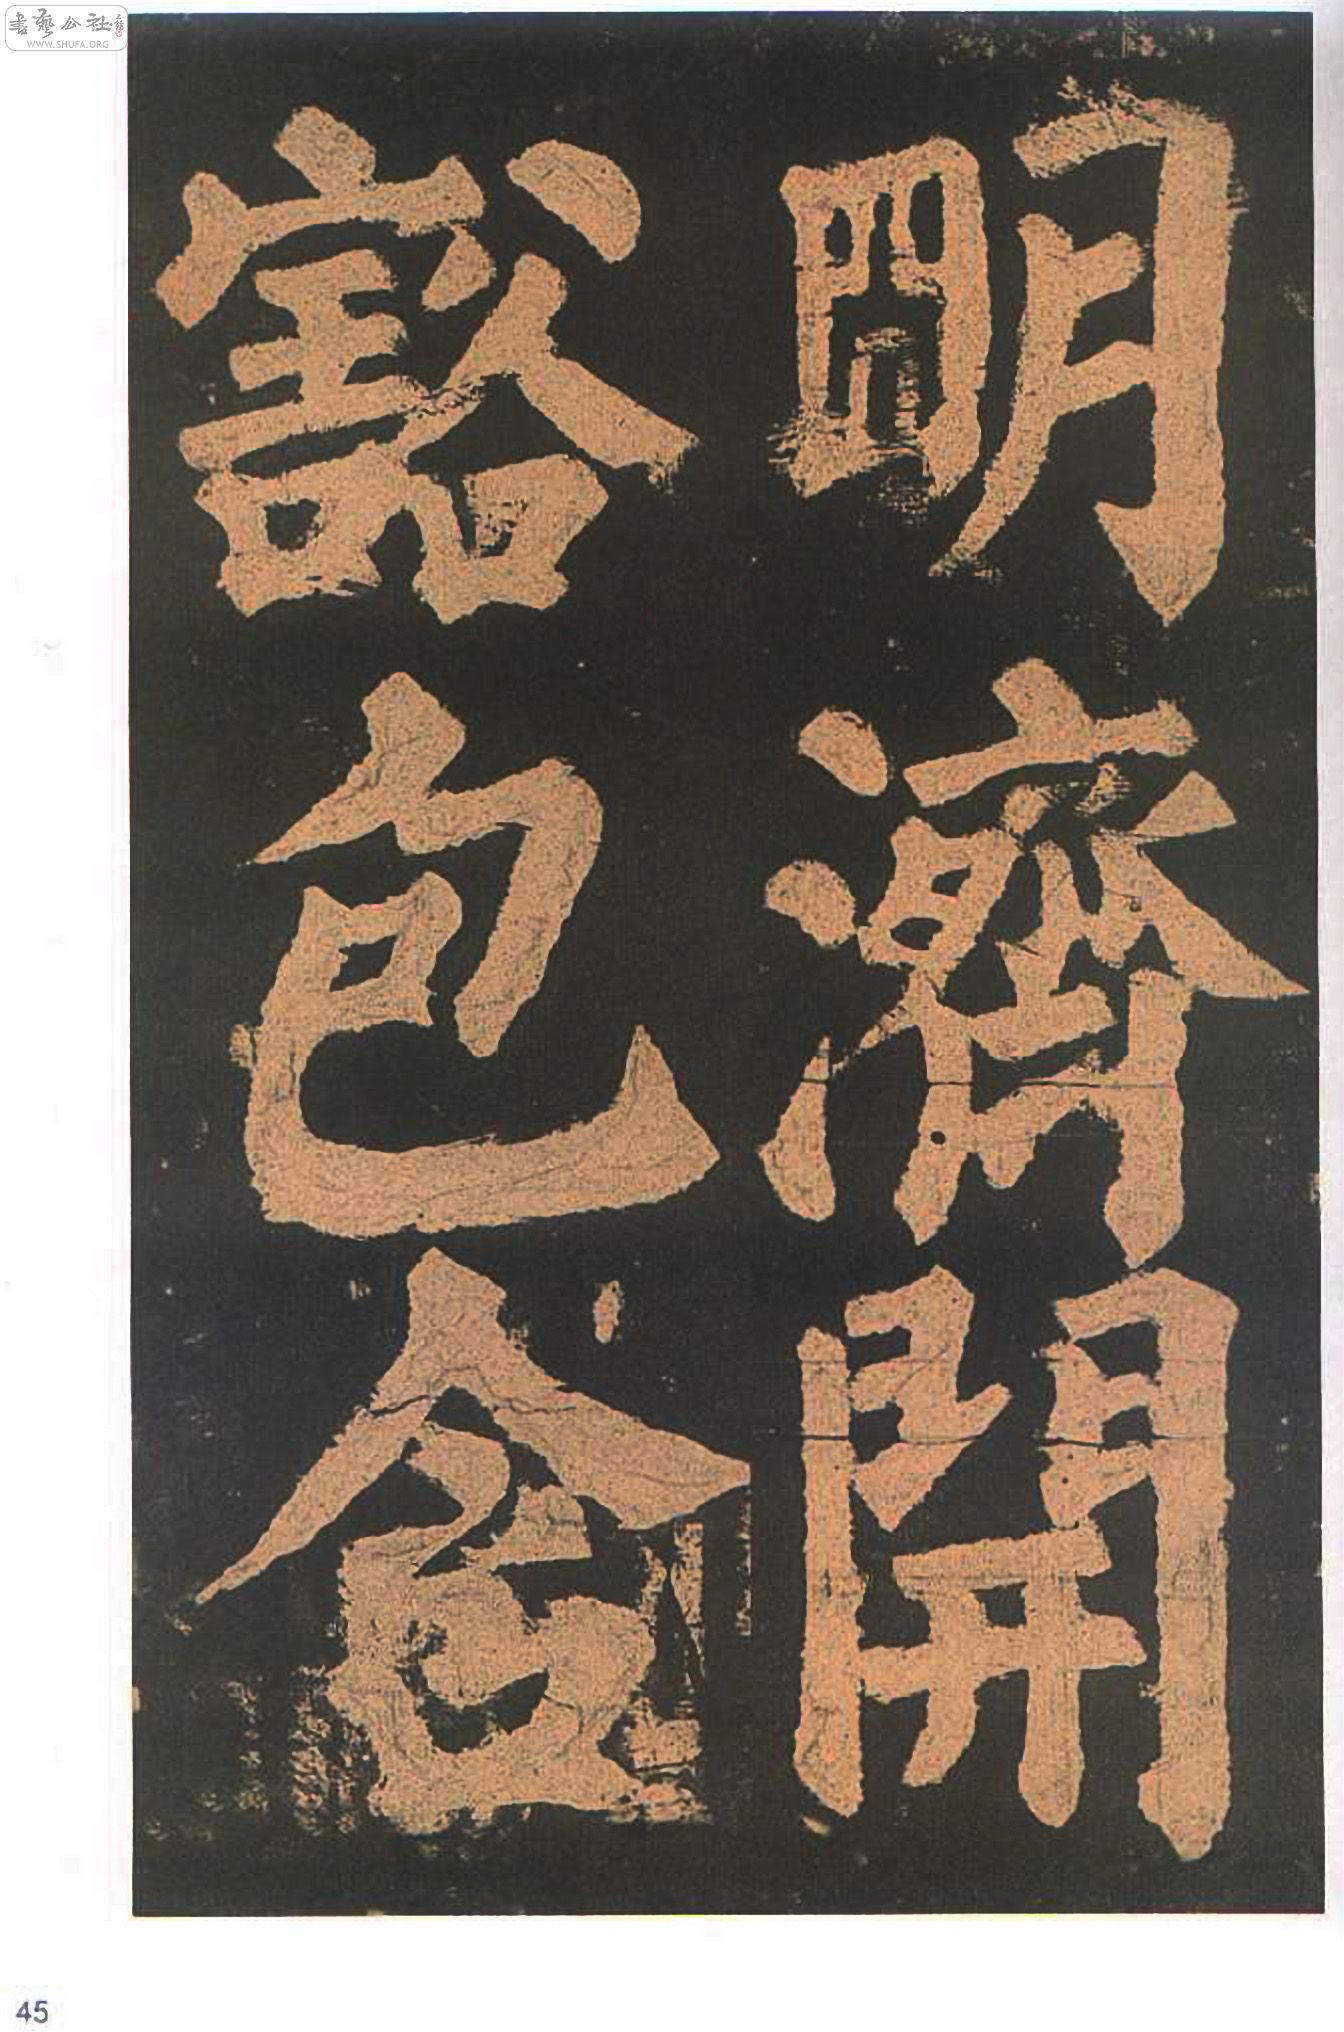 書藝公社
WWW.SHUFA.ORG
明濟開
豁包含
45